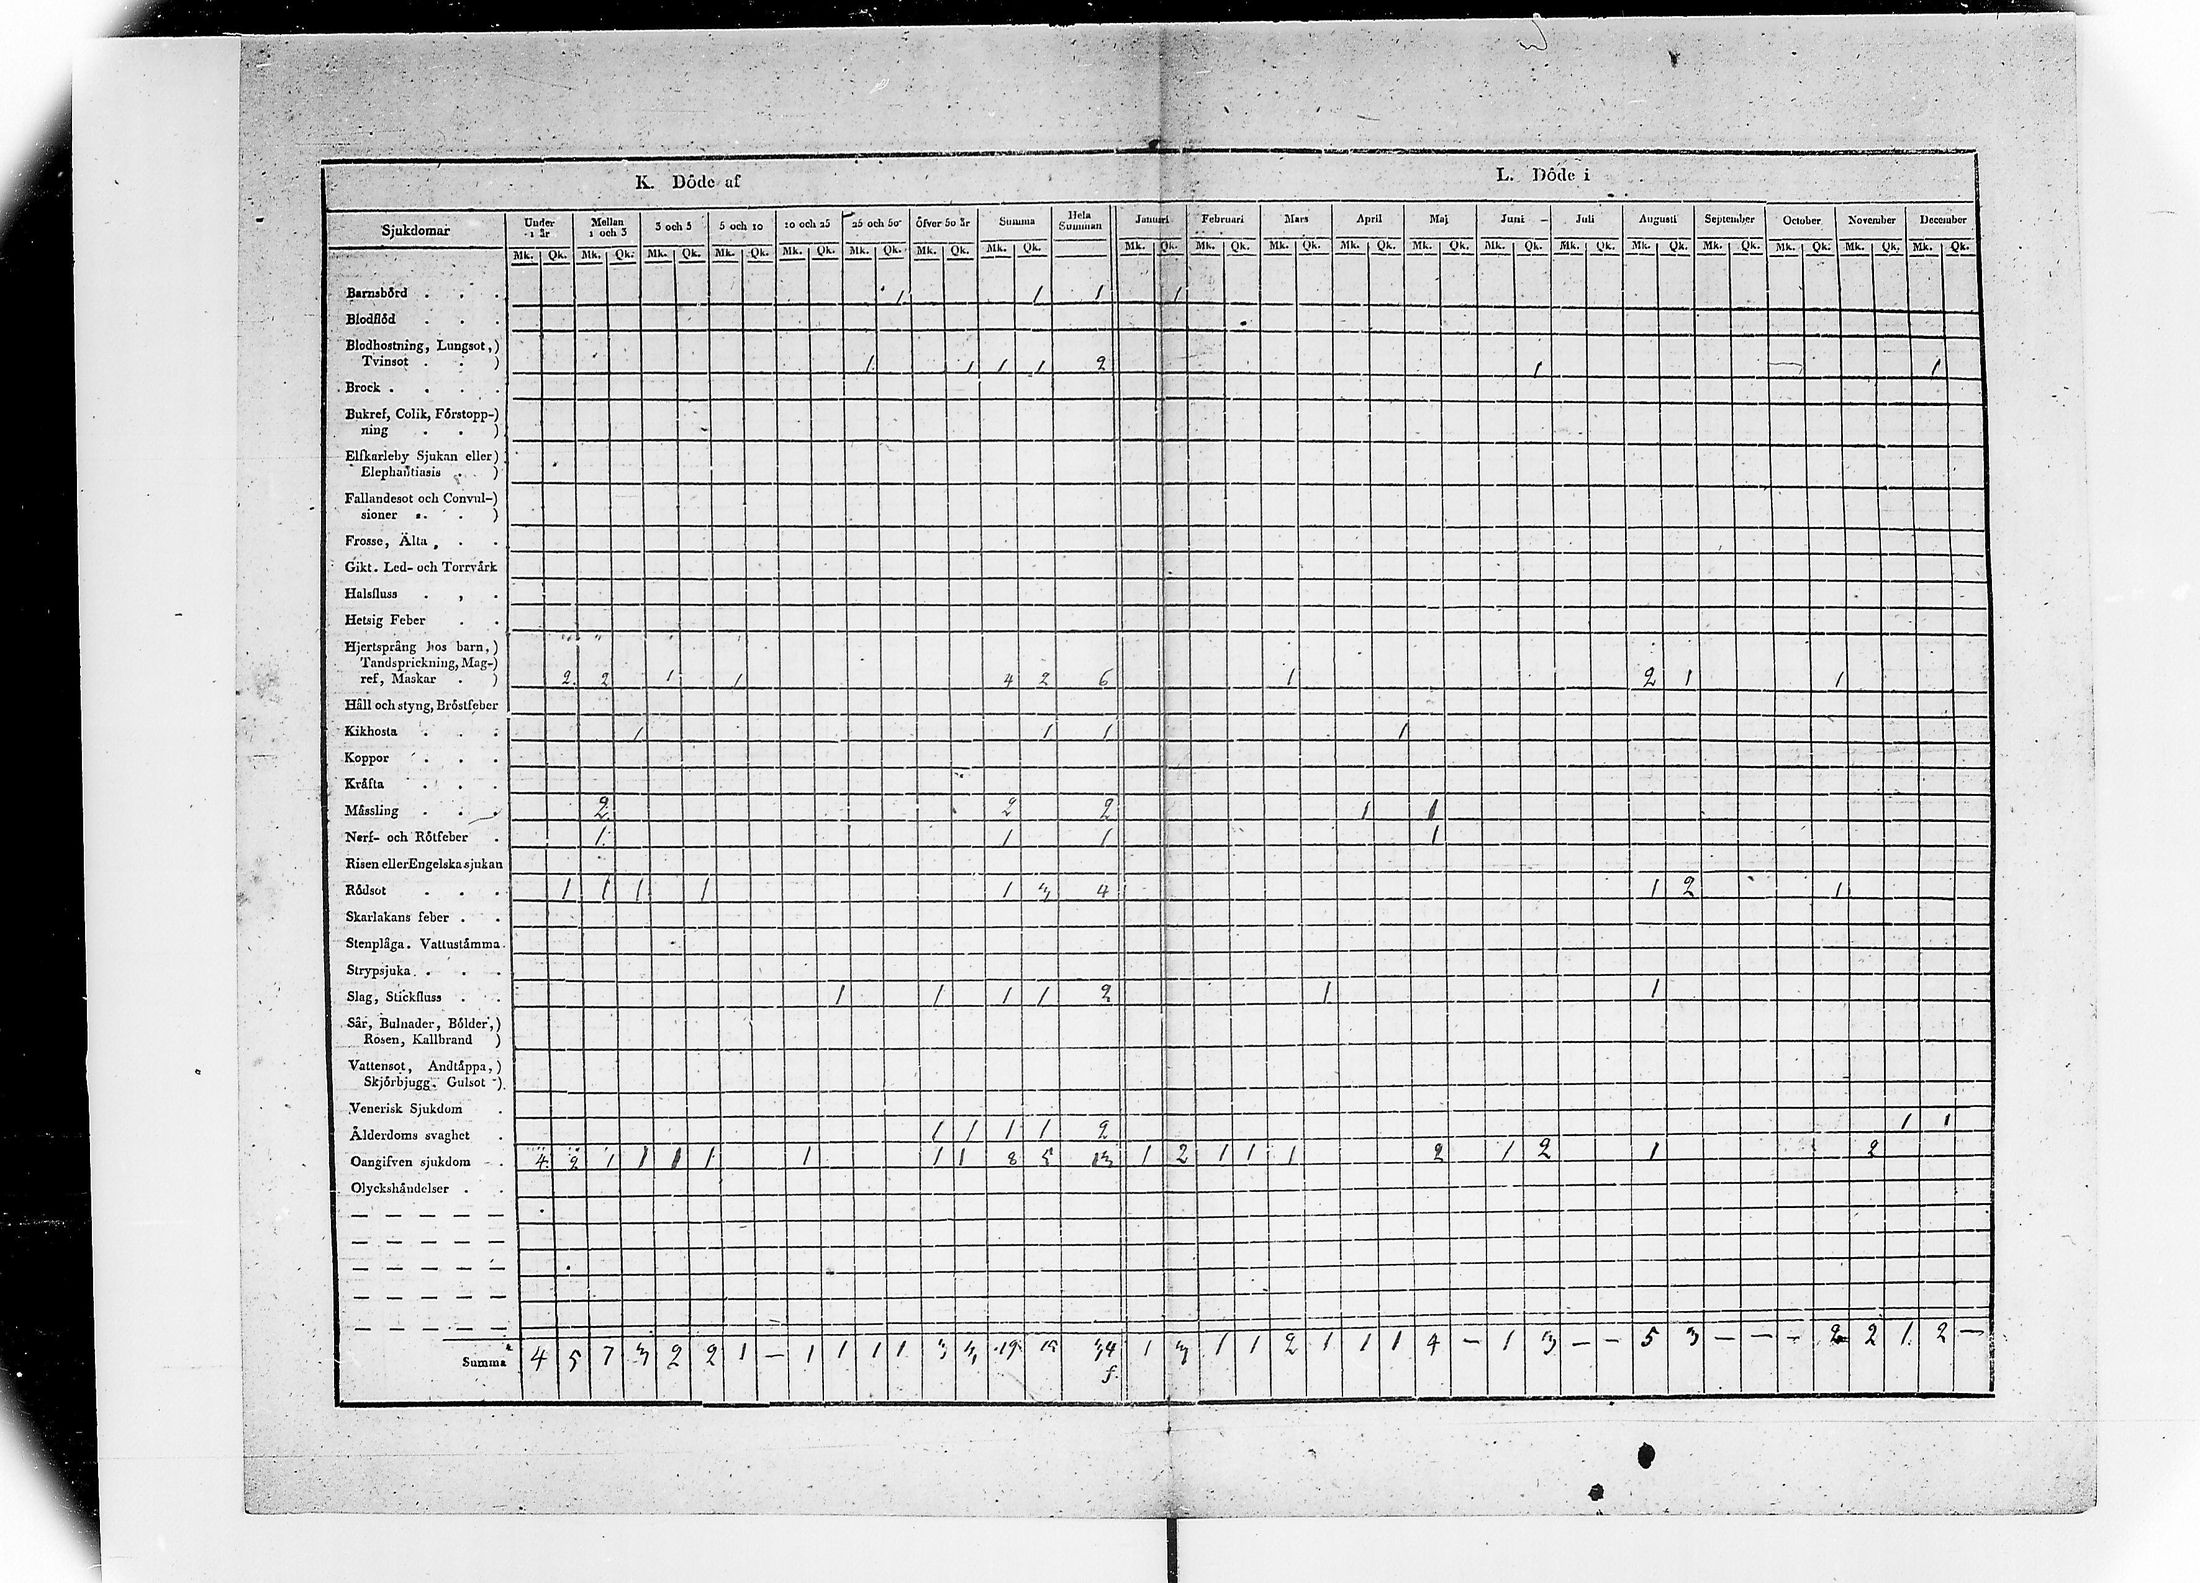 K. Döde af
L. Döde i
Sjukdomar
Under 1 år
Mellan 1 och 3
3 och 5
5 och 10
10 och 25
25 och 50
Öfver 50 år
Summa
Hela Summan
Januari
Februari
Mars
April
Maj
Juni
Juli
Augusti
September
October
November
December
Mk. Qk. Mk. Qk. Mk. Qk. Mk. Qk. Mk. Qk. Mk. Qk. Mk. Qk. Mk. Qk. Mk. Qk. Mk. Qk. Mk. Qk. Mk. Qk. Mk. Qk. Mk. Qk. Mk. Qk. Mk. Qk. Mk. Qk. Mk. Qk. Mk. Qk. Mk. Qk.
Barnsbörd . . . 1 1 1 1
Blodflöd . . .
Blodhostning, Lungsot,)
Tvinsot . . ) 1 1 1 1 2 1 1
Brock . . . .
Bukref, Colik, Förstopp-)
ning . . )
Elfkarleby Sjukan eller)
Elephantiasis . )
Fallandesot och Convul-)
sioner . . )
Frosse, Älta, . .
Gikt. Led- och Torrvärk
Halsfluss . , .
Hetsig Feber . .
Hjertsprång hos barn,)
Tandsprickning, Mag-)
ref, Maskar . ) 2 2 1 1 4 2 6 1 2 1 1
Håll och styng, Bröstfeber
Kikhosta . . . 1 1 1 1
Koppor . . .
Kräfta . . .
Mässling . . . 2 2 2 1 1
Nerf- och Rötfeber . 1 1 1 1
Risen eller Engelska sjukan
Rödsot . . . 1 1 1 1 1 3 4 1 2 1
Skarlakans feber . .
Stenplåga. Vattustämma.
Strypsjuka . . .
Slag, Stickfluss . . 1 1 1 1 2 1 1
Sår, Bulnader, Bölder,)
Rosen, Kallbrand )
Vattensot, Andtäppa,)
Skjörbjugg. Gulsot -)
Venerisk Sjukdom .
Ålderdoms svaghet . 1 1 1 1 2 1 1
Oangifven sjukdom . 4 2 1 1 1 1 1 1 1 8 5 13 1 2 1 1 1 2 1 2 1 2
Olyckshändelser . .
Summa 4 5 7 3 2 2 1 — 1 1 1 1 3 3 19 15 34 1 3 1 1 2 1 1 1 4 — 1 3 — — 5 3 — — - 2 2 1 2 —
f.